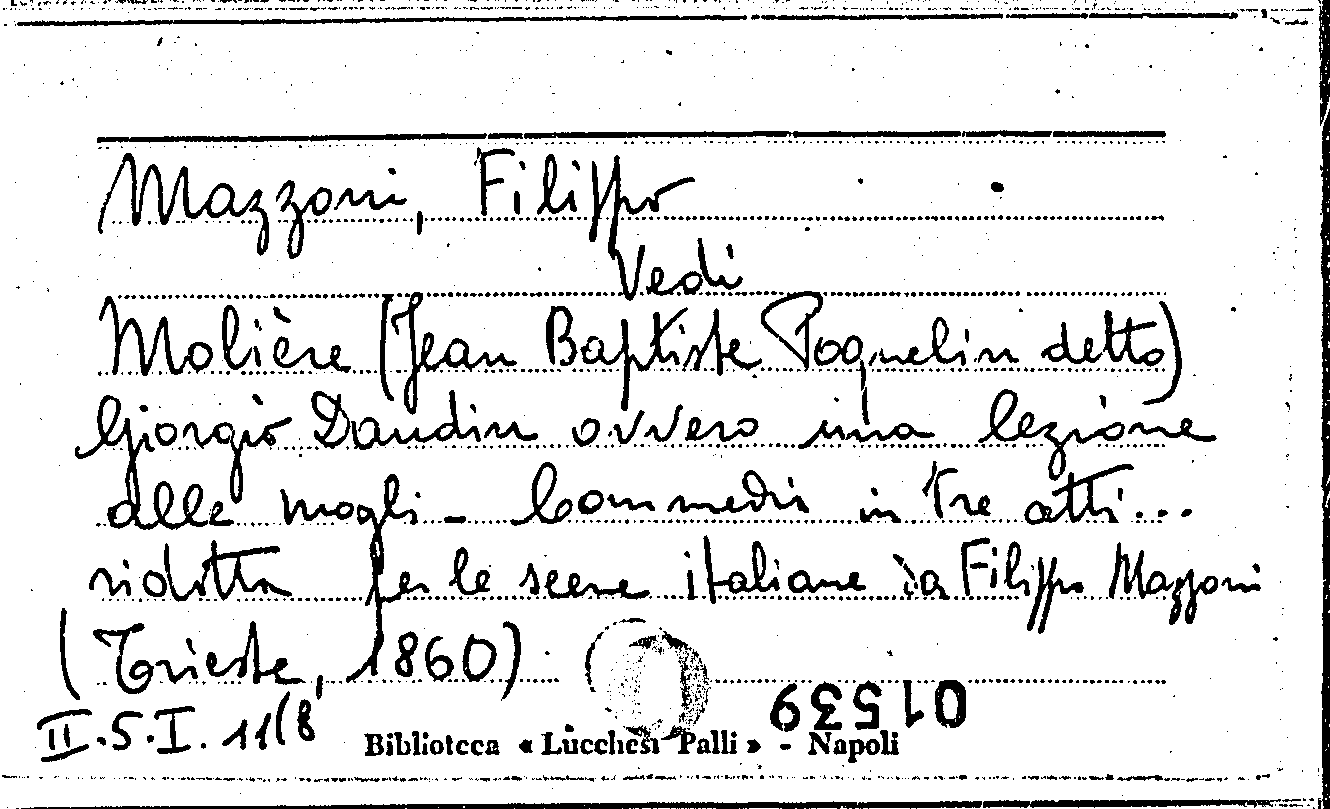 Mazzoni, Filippo
Vedi
Molière (Jean Baptiste Poquelin detto)
Giorgio Dandin ovvero una lezione
alle mogli - Commedia in tre atti...
ridotta per le scene italiane da Filippo Mazzoni
(Trieste, 1860)
01539
II.5.I.11(8
Biblioteca « Lucchesi Palli » - Napoli